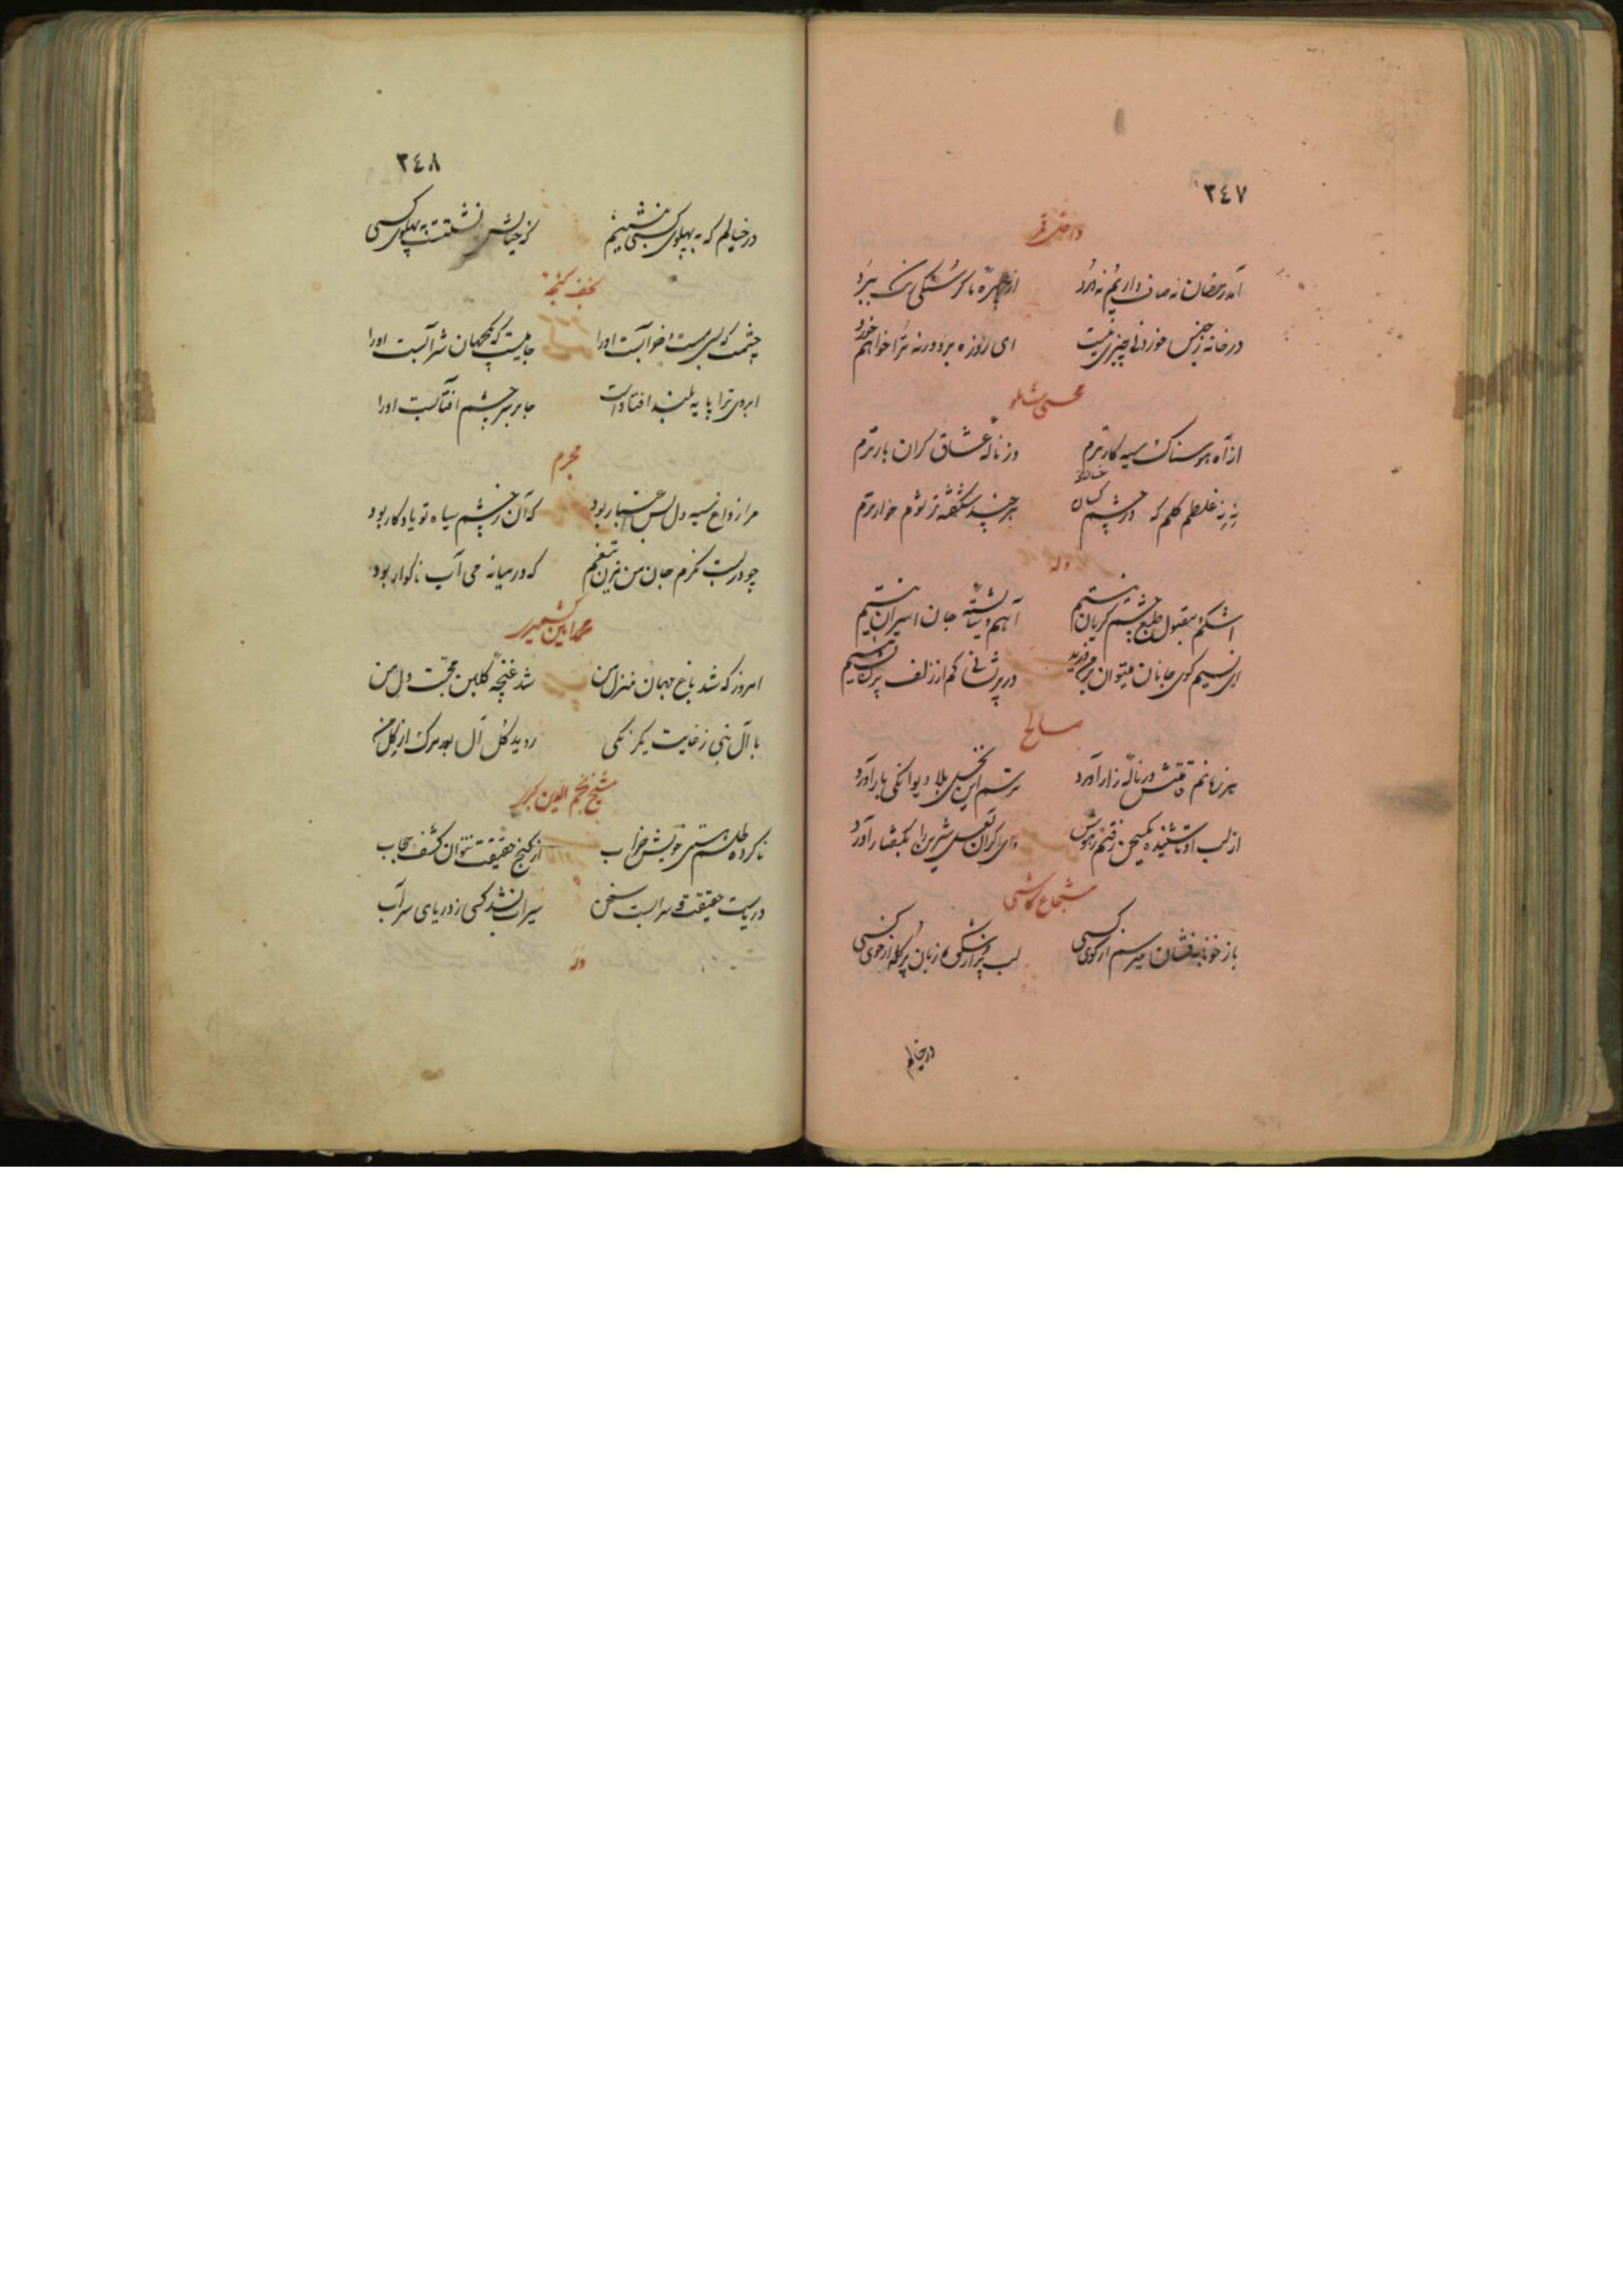 ٣٤٧
آمد رمضان نه صاف داریم نه درد از چهره ما گرسنگی رنگ ببرد
در خانه ز جنس خوردنی چیزی نیست ای روزه برو ورنه ترا خواهم خورد
محسنی شاملو
از آه هوسناک سیه کارترم وز ناله عشاق گران بارترم
نی نی غلطم گلم که در چشم کسان هر چند شکفته تر شوم خوارترم
وله
اشکم و مقبول طبع چشم گریان نیستم آهم و شایسته جان اسیران نیستم
ای نسیم کوی جانان میتوان بر من وزید در پریشانی کم از زلف پریشان نیستم
صالح
هر زمانم قامتش در ناله زار آورد ترسم این نخل بلا دیوانگی بار آورد
از لب او ناشنیده یک سخن رفتم ز هوش وای اگر آن لعل شیرین را بگفتار آورد
شجاع کاشی
باز خونابه فشان میرسم از کوی کسی لب پر از شکوه زبان پر گله از خوی کسی
در خیالم
٣٤٨
در خیالم که به پهلوی کسی بنشینم که خیالش ننشست به پهلوی کسی
چشمت که بسی مست و خرابست او را جامیست که پنهان شرابست او را
ابروی ترا پایه بلند افتادست جا بر سر چشم آفتابست او را
محرم
مرا ز داغ سیه دل بس اعتبار بود که آن ز چشم سیاه تو یادگار بود
چو در برت نگرم جان من مزن تیغم که در میانه می آب ناگوار بود
محمد امین کشمیر
امروز که شد باغ جهان منزل من شد غنچه گلبن محبت دل من
با آل نبی ز غایت یکرنگی روید گل آل بعد مرگ از گل من
شیخ نجم الدین کبری
ناکرده طلسم هستی خویش خراب از گنج حقیقت نتوان کشف حجاب
دریاست حقیقت و سرابست سخن سیراب نشد کسی ز دریای سراب
وله